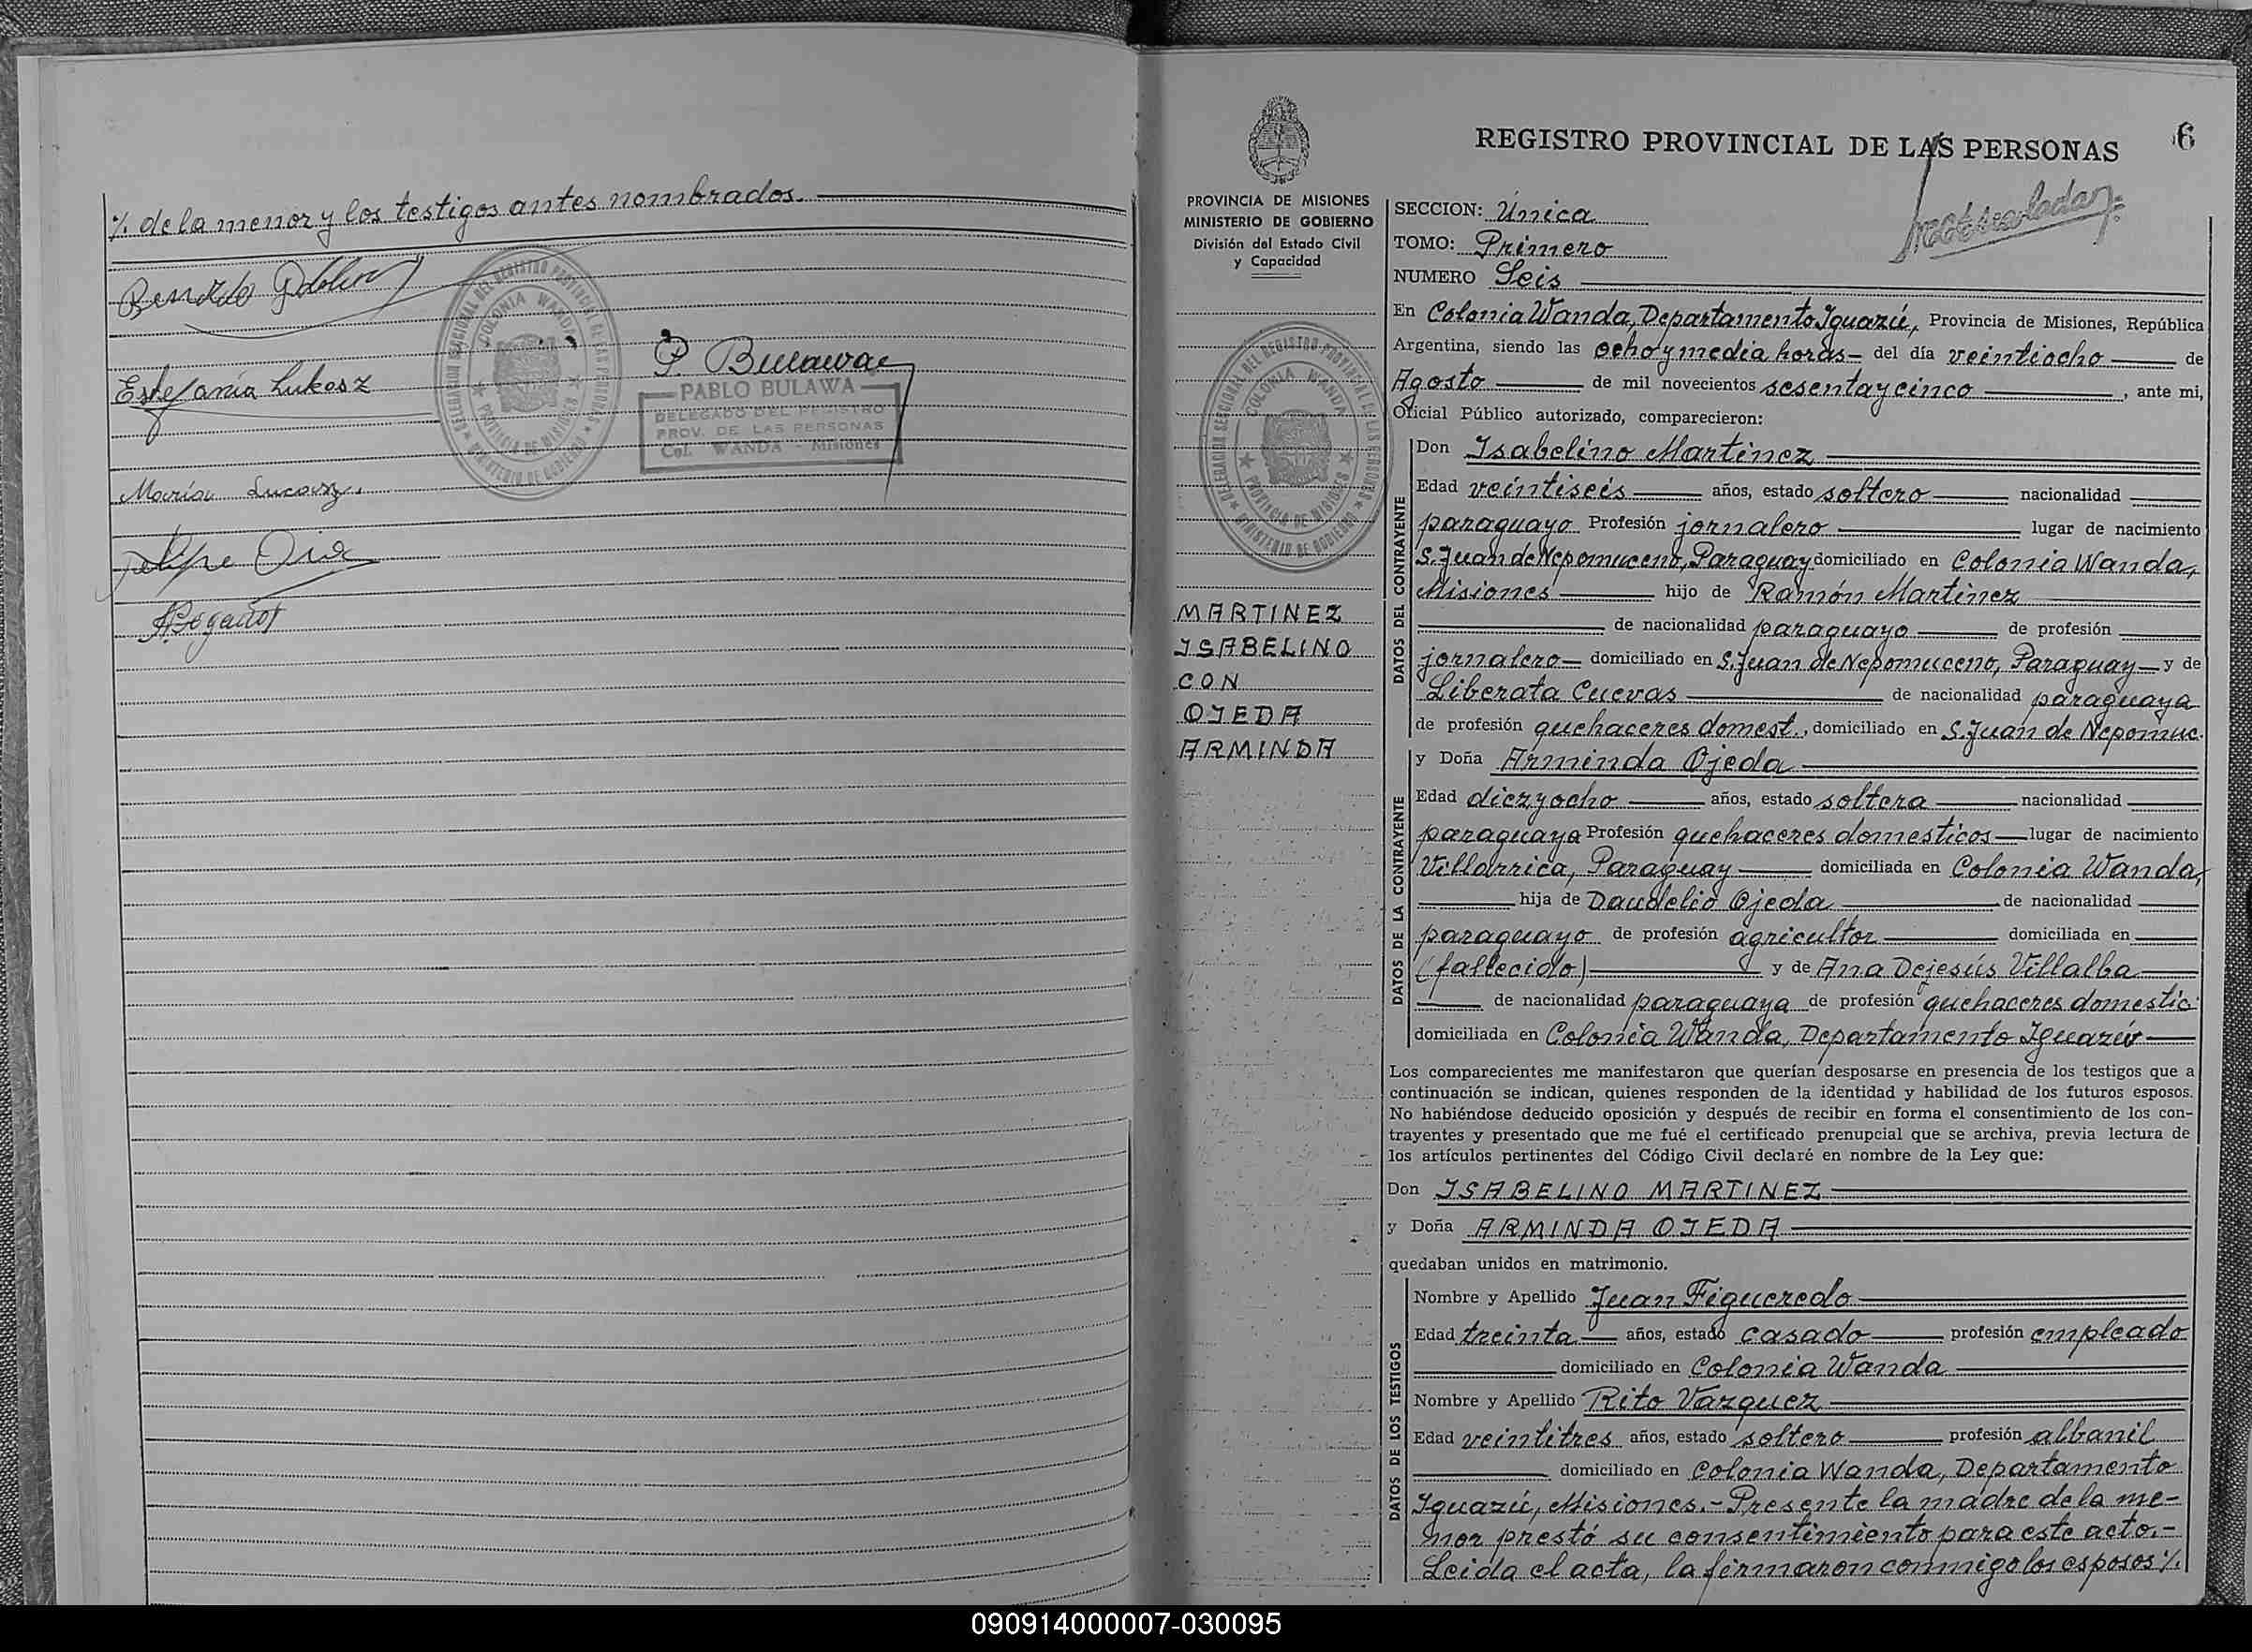 ⁒ de la menor y los testigos antes nombrados.
Estefanía Lukasz
P. Bulawa
PABLO BULAWA
DELEGADO DEL REGISTRO
PROV. DE LAS PERSONAS
Col. WANDA - Misiones
DELEGACION SECCIONAL DEL REGISTRO PROVINCIAL DE LAS PERSONAS
COLONIA WANDA
PROVINCIA DE MISIONES
MINISTERIO DE GOBIERNO
María
Felipe
6
REGISTRO PROVINCIAL DE LAS PERSONAS
PROVINCIA DE MISIONES
MINISTERIO DE GOBIERNO
División del Estado Civil
y Capacidad
DELEGACION SECCIONAL DEL REGISTRO PROVINCIAL DE LAS PERSONAS
COLONIA WANDA
PROVINCIA DE MISIONES
MINISTERIO DE GOBIERNO
MARTINEZ
ISABELINO
CON
OJEDA
ARMINDA
SECCION: Única
TOMO: Primero
NUMERO Seis
En Colonia Wanda, Departamento Iguazú, Provincia de Misiones, República
Argentina, siendo las ocho y media horas - del día veintiocho de
Agosto de mil novecientos sesenta y cinco, ante mi,
Oficial Público autorizado, comparecieron:
DATOS DEL CONTRAYENTE
Don Isabelino Martinez
Edad veintiseis años, estado soltero nacionalidad
paraguayo Profesión jornalero lugar de nacimiento
S. Juan de Nepomuceno, Paraguay domiciliado en Colonia Wanda,
Misiones hijo de Ramón Martinez
de nacionalidad paraguayo de profesión
jornalero - domiciliado en S. Juan de Nepomuceno, Paraguay - y de
Liberata Cuevas de nacionalidad paraguaya
de profesión quehaceres domest., domiciliado en S. Juan de Nepomuc.
DATOS DE LA CONTRAYENTE
y Doña Arminda Ojeda
Edad diezyocho años, estado soltera nacionalidad
paraguaya Profesión quehaceres domesticos - lugar de nacimiento
Villarrica, Paraguay domiciliada en Colonia Wanda,
hija de Daudelio Ojeda de nacionalidad
paraguayo de profesión agricultor domiciliada en
(fallecido) y de Ana Dejesús Villalba
de nacionalidad paraguaya de profesión quehaceres domestic.
domiciliada en Colonia Wanda, Departamento Iguazú
Los comparecientes me manifestaron que querían desposarse en presencia de los testigos que a
continuación se indican, quienes responden de la identidad y habilidad de los futuros esposos.
No habiéndose deducido oposición y después de recibir en forma el consentimiento de los con-
trayentes y presentado que me fué el certificado prenupcial que se archiva, previa lectura de
los artículos pertinentes del Código Civil declaré en nombre de la Ley que:
Don ISABELINO MARTINEZ
y Doña ARMINDA OJEDA
quedaban unidos en matrimonio.
DATOS DE LOS TESTIGOS
Nombre y Apellido Juan Figueredo
Edad treinta años, estado casado profesión empleado
domiciliado en Colonia Wanda
Nombre y Apellido Rito Vazquez
Edad veintitres años, estado soltero profesión albanil
domiciliado en Colonia Wanda, Departamento
Iguazú, Misiones. - Presente la madre de la me-
nor prestó su consentimiento para este acto. -
Leida el acta, la firmaron conmigo los esposos ⁒
090914000007-030095